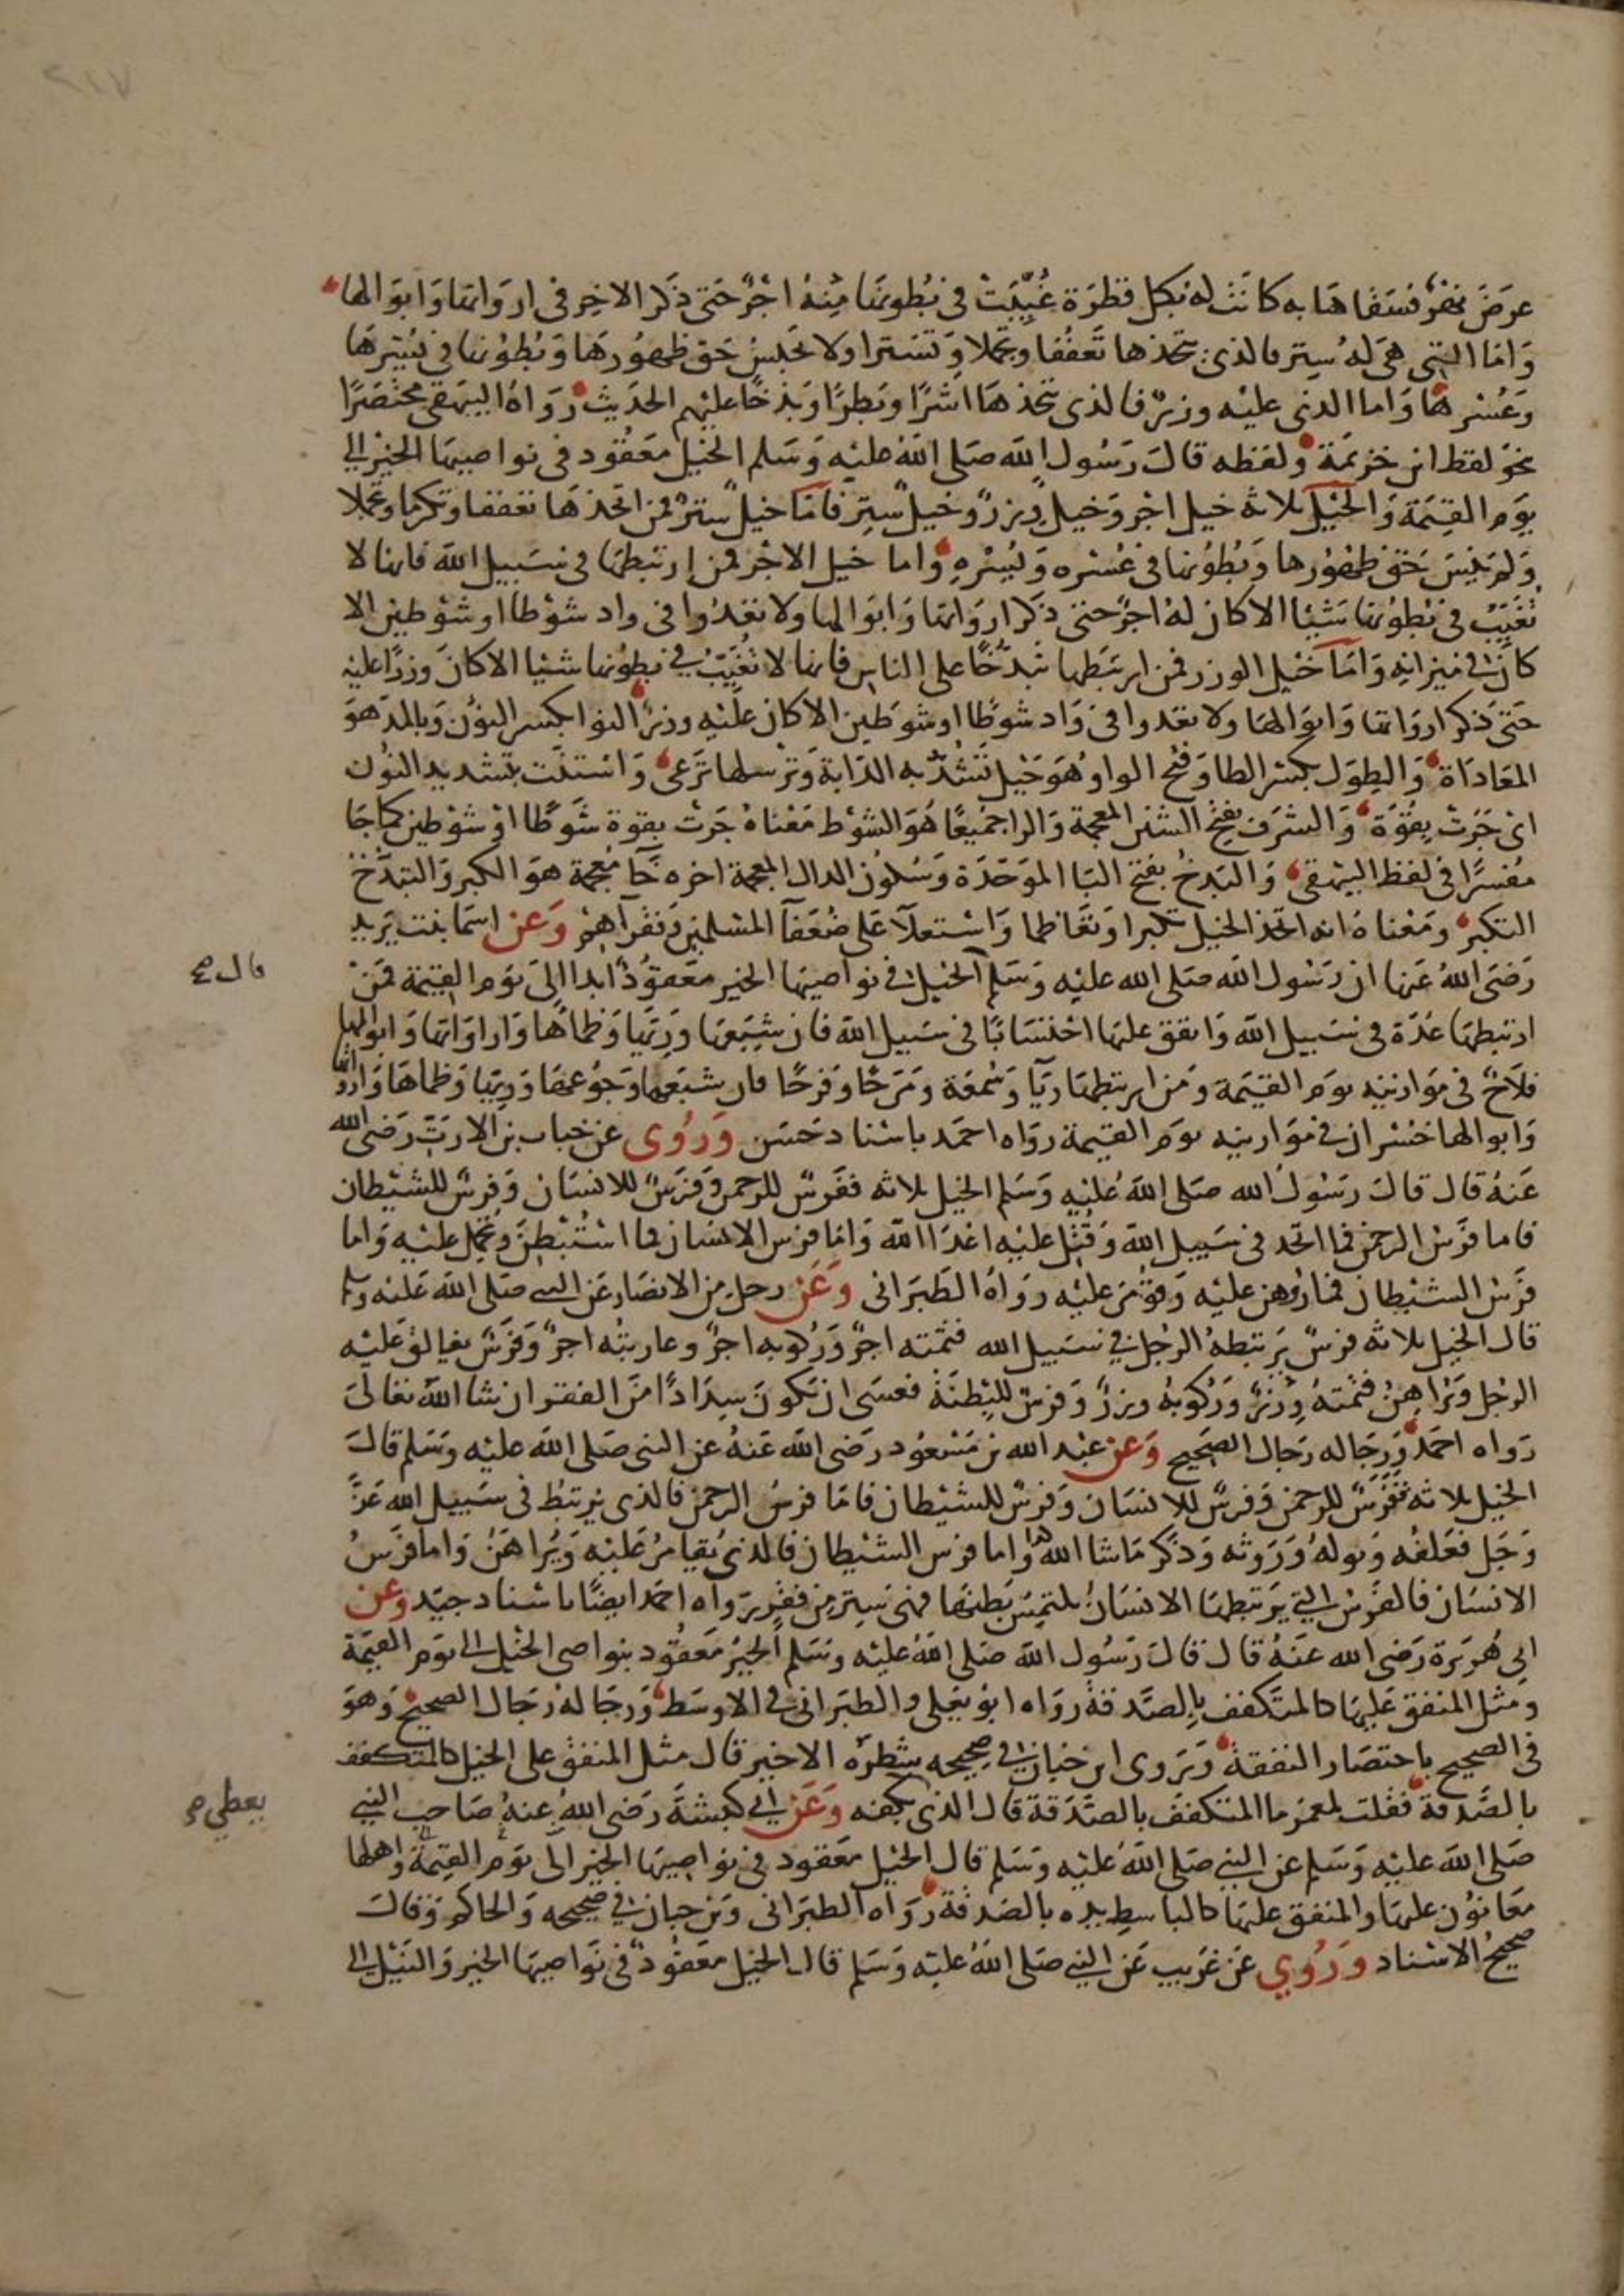 ٢١٧
عرَضَ نهرٌ فسَقاهَا به كانَت له بكل قطرَة غُيِّبَتْ في بُطونهَا مِنهُ اجْرٌ حَتى ذكَر الاخِر في اروَاثها وَابوَالها
وَامَا التي هيَ لهُ سِتر فالذى يتخذها تَعفُفا وتجملا وَتَسترا ولا يحَبسُ حَق ظهوُرهَا وَبُطوُنها في يُسْرهَا
وَعُسْرهَا وَاما الذي عليْه وزرٌ فالذى يتخذهَا اشَرًا وبَطرًا وَبذخًا عليْهم الحدَيث رَوَاهُ البيهَقي مختصَرًا
نحوَ لفظ ابن خزيمَة ولفظه قالَ رَسُول الله صَلى اللهُ عليْه وَسَلم الخيْل مَعَقُود في نواصيهَا الخيْر الى
يوَم القيَمَة وَالخَيْل ثلاثة خيل اجْر وَخيل وِزر وخيل سِتر فامَا خيل سترٌ فمن اتخذهَا تعففا وتكرما وتجملا
وَلم ينسَ حَق ظهوُرها وَبُطوُنها في عُسْره وَيُسْرهِ واما خيل الاجْر فمن ارتبَطها في سَبيل الله فانها لا
تُغيِّبُ في بُطوُنها شَيْئا الا كان لهُ اجرٌ حتى ذكَر اروَاثها وَابوَالها ولا تعدُوا في واد شوْطا او شوْطين الا
كان في ميزانه وَامَا خَيْل الوزر فمن ارتبَطها تبَذُّخًا على الناس فانها لا تُغيِّبُ في بطوُنها شيْئا الا كانَ وزرًا عليْه
حَتىَ ذكر اروَاثها وَابوَالهَا ولا تعدوا في وَاد شوطًا او شوطَين الا كان علَيْه وزرٌ النوا بكسر النوُن وَبالمد هوَ
المعَادَاة وَالطِوَل بكسْر الطا وَفتْح الواو وهُوَ حَبْل تُشُدّ به الدَابة وَترْسلها تَرعَى وَاسْتنَّت بتشديد النوُن
اىْ جَرَتْ بقوَّة وَالشرَف بفتح الشين المعجمة وَالرا جميعًا هُوَ الشوْط مَعْناهُ جَرَت بقوة شوَطًا اوْ شوْطين كما جَا
مُفسرًا في لفظ البيهقي وَالبَذخُ بفتح البَا الموَحَدَة وَسُكوُن الذال المعجمة اخره خَا مُعجمة هوَ الكبر وَالتبَذّخ
التكبر ومَعْناهُ انه اتخذ الخيْل تكبرا وَتعَاظما وَاسْتعلآ عَلى ضُعَفا المسْلمين وَفقَرآهِمْ وَعن اسمَا بنت يَزيد
رَضيَ اللهُ عَنها ان رَسُول الله صَلى الله عليْه وَسَلم الخيْل في نوَاصيهَا الخير معَقوُدٌ ابدا الىَ يَوَم القيَمة فمَنْ
قال صح
ارتبطهَا عُدّة في سَبيل الله وَانفق عليهَا احْتسَابًا في سَبيل الله فان شِبَعَهَا وَرِيَّهَا وَظمأهَا وَارواثهَا وَابوَالها
فلاَحٌ في مَوَازينه يوَم القيَمة وَمَن ارتبَطهَا ريآ وَسُمعَة وَمَرَحًا وَفرَحًا فان شبَعهَا وَجوُعهَا وَرِيهَا وَظماهَا وَاروَاثها
وَابوالها خُسْران في مَوَازينه يوَم القيَمة روَاه احمَد باسْناد حَسَن وَرُوى عن خباب بن الارَتّ رَضي الله
عَنهُ قال قالَ رَسُولُ الله صَلى اللهُ عَليْه وَسَلم الخيل ثلاثة ففَرسٌ للرحمن وَفرَسٌ للانسَان وَفرسٌ للشيْطان
فاما فرَسْ الرحمن فما اتخذ في سَبيل الله وَقُتِل عليْه اعْدَا الله وَامَا فرَس الانسَان فما اسْتُبْطِنَ وتحمل عليْه وَاما
فرَس الشيْطان فما رُوهن عليْه وَقوُمرَ عليْه روَاهُ الطَبَرَاني وَعَن رجل من الانصَار عَن النبي صَلى الله عَليْه وسلم
قال الخيل ثلاثة فرسٌ يَرتبطهُ الرجُل في سَبيل الله فثمنه اجرٌ وَرُكوُبه اجرٌ وعَاريتُه اجرٌ وَفرَسٌ يغالق عَليْه
الرجُل وَيُرَاهِنْ فثمنهُ وِزْرٌ وَرُكوبُهُ وزرٌ وَفرسٌ للبِطنَة فعسَى ان يكونَ سِدَادًا منَ الفقر ان شا اللهُ تعَالىَ
رَوَاه احَمدُ وَرِجَاله رجَال الصَحيح وَعن عبْد الله بن مَسْعوُد رَضى الله عَنهُ عن النبى صَلى الله عليْه وَسَلم قالَ
الخيل ثلاثة ففَرَسٌ للرحمن وَفرسٌ للانسَان وَفرسٌ للشيْطان فامَا فرَسُ الرحمن فالذى يرتبَطُ في سَبيل الله عَزَّ
وَجَل فعَلفُه وَبوله وَرَوثه وَذكرَ مَاشا اللهُ وَاما فرس الشيْطان فالذى يُقامَرُ عَليْه وَيُراهَن وَاما فرَسُ
الانسَان فالفرَسْ التي يَرتبطهَا الانسَانُ يلتمسُ بَطنهَا فهيَ سِتر من فقر روَاه احمَد ايضًا باسْناد جيّد وَعن
ابى هُريَرَة رَضى الله عَنهُ قال قالَ رَسُول الله صَلى اللهُ عَليْه وسَلم الخيْرُ مَعَقوُد بنواصى الخيْل الى يوَم القيَمَة
وَمثَل المنفق عَليهَا كالمتكَفف بالصَدقة روَاه ابوُ يَعلى والطبَراني في الاوسَط وَرِجَالهُ رجَال الصحيح وَهوَ
في الصحيح باختصَار النفقة وَرَوى ابن حبَان في صحيحه شطرَه الاخير قال مثل المنفق على الخيل كالمتكفف
بالصَدقة فقلت لمعمر ما المتكفف بالصَدَقة قال الذى بكفه وَعَن ابي كبشَة رَضي اللهُ عنهُ صَاحب النبي
يعطي صح
صَلى الله عليْه وَسَلم عن النبي صَلى الله عَليْه وَسَلم قال الخيْل مَعَقود في نوَاصيهَا الخير الى يوَم القيمَة واهلها
معَانوُن عليهَا والمنفق عليهَا كالباسطِ يده بالصَدقة رَوَاه الطبَرَاني وَبن حبان في صحيحه وَالحاكم وَقالَ
صحيحُ الاسْناد وَرُوي عَن غَريب عَن النبي صَلى اللهُ عليْه وَسَلم قال الخيْل معَقوُدٌ في نوَاصيهَا الخير وَالنيْل الى